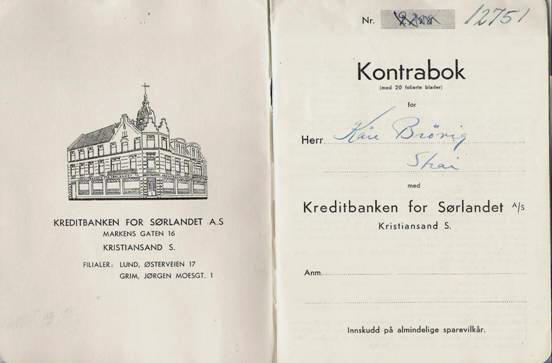 KREDITBANKEN FOR SØRLANDET A.S
MARKENS GATEN 16
KRISTIANSAND S.
FILIALER: LUND, ØSTERVEIEN 17
GRIM, JØRGEN MOESGT. 1
Nr. 12751
Kontrabok
(med 20 folierte blader)
for
Herr Kåre Brövig
med
Kreditbanken for Sørlandet A/S
Kristiansand S.
Anm.
Innskudd på almindelige sparevilkår.